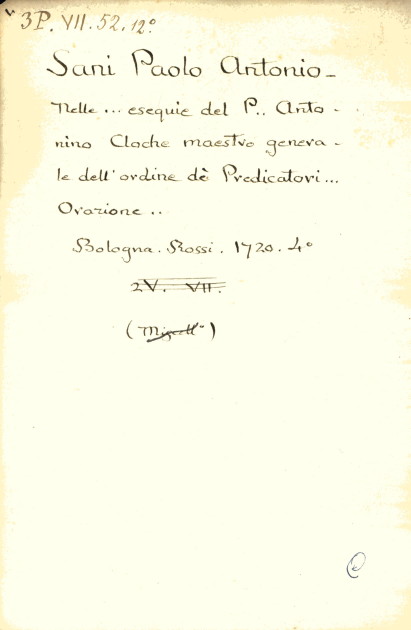 3P. VII. 52. 12°.
Sani Paolo Antonio –
Nelle ... esequie del P.. Anto -
nino Cloche maestro genera -
le dell'ordine dè Predicatori ...
Orazione ..
Bologna. Rossi. 1720. 4°
2V. VII.